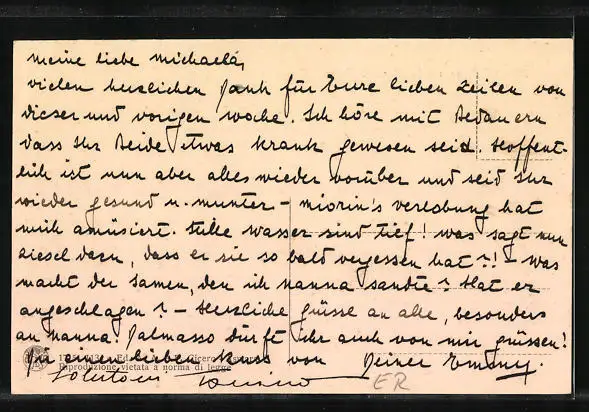 meine liebe Michaela,
vielen herzlichen Dank für Eure lieben Zeilen von
dieser und vorigen Woche. Ich höre mit Bedauern
dass Ihr Beide etwas krank gewesen seid. Hoffent-
lich ist nun aber alles wieder vorüber und seid Ihr
wieder gesund u. munter - Verlobung hat
mich amüsiert. Stille Wasser sind tief! Was sagt nun
Liesel dazu, dass er sie so bald vergessen hat?! - Was
macht der Samen, den ich Nanna sandte? Hat er
angeschlagen? - Herzliche Grüsse an alle, besonders
an Nanna. Dalmasso dürft Ihr auch von mir grüssen!
einen lieben Kuss von Deiner
Riproduzione vietata a norma di legge
ER